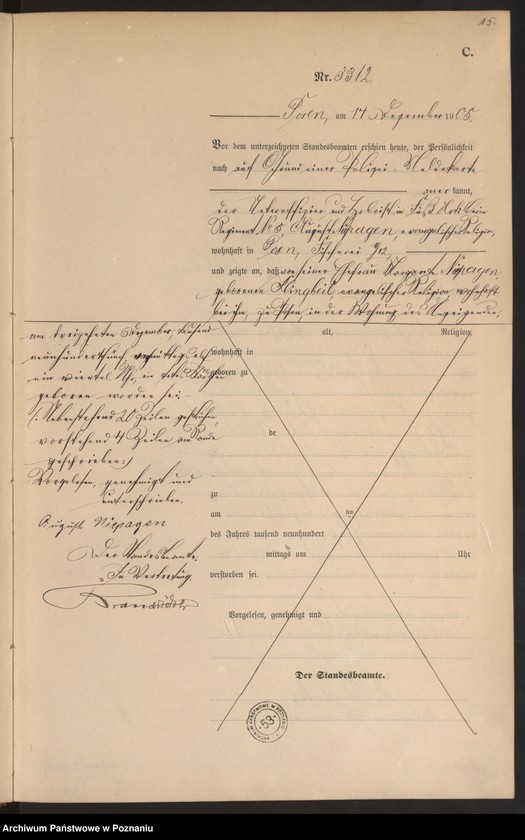 15.
C.
Nr. 3312
Posen, am 14 Dezember 1905.
Vor dem unterzeichneten Standesbeamten erschien heute, der Persönlichkeit
nach auf Grund einer Polizei-Meldekarte
anerkannt,
der Unteroffizier und Hoboist im Fuß Art
Regiment No 5, August Niepagen, evangelischer Religion,
wohnhaft in Posen,
und zeigte an, daß von seiner Ehefrau Margarete Niepagen
geborenen Klingbeil, evangelischer Religion, wohnhaft
bei ihm, zu Posen, in der Wohnung des Anzeigenden,
am dreizehnten Dezember tausend
neunhundertfünf, vormittags elf
ein viertel Uhr, ein totes Mädchen
geboren worden sei.
(: Nebenstehend 20 Zeilen gestrichen,
vorstehend 4 Zeilen am Rande
geschrieben :)
Vorgelesen, genehmigt und
unterschrieben.
August Niepagen
Der Standesbeamte.
In Vertretung.
alt, Religion,
wohnhaft in
geboren zu
de
zu
am ten
des Jahres tausend neunhundert
mittags um Uhr
verstorben sei.
Vorgelesen, genehmigt und
Der Standesbeamte.
53
Archiwum Państwowe w Poznaniu